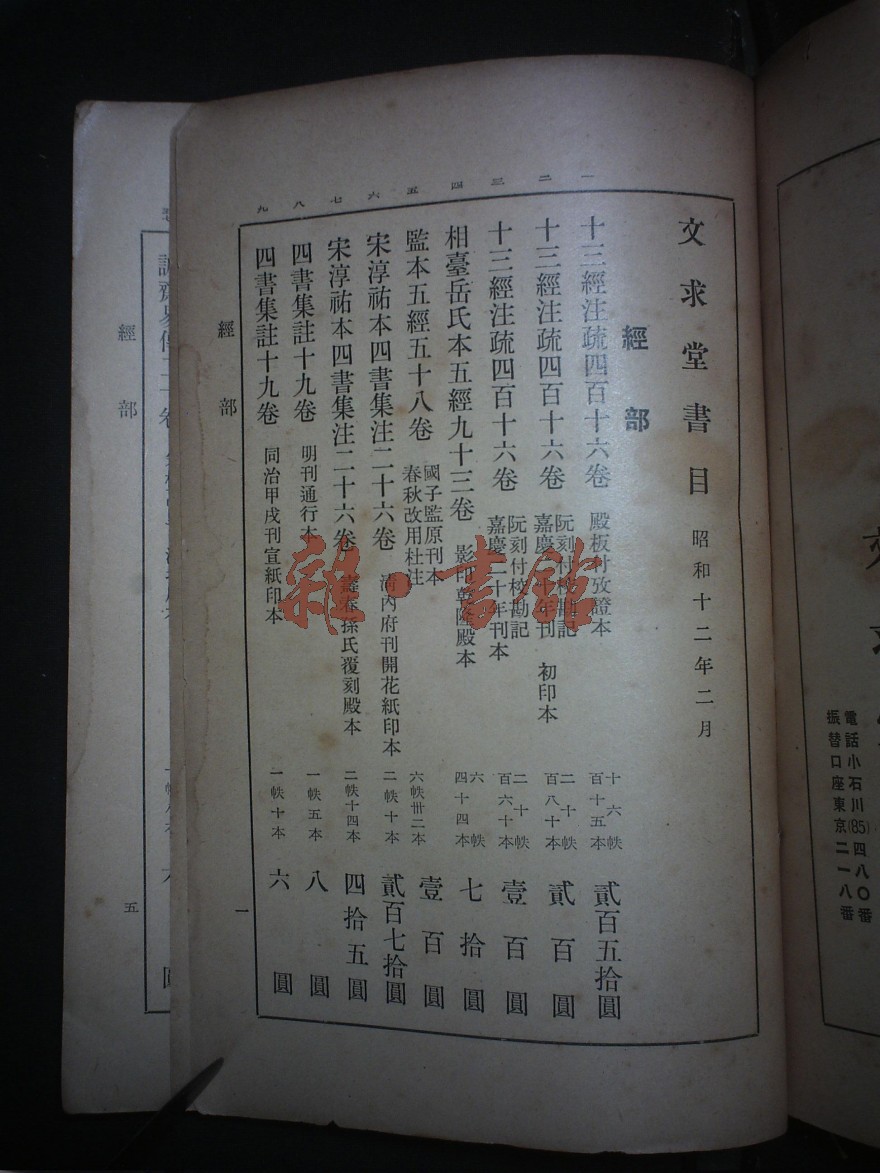 文求堂書目 昭和十二年二月
經部
一 十三經注疏四百十六卷 殿板付攷證本 十六帙百十五本 貳百五拾圓
二 十三經注疏四百十六卷 阮刻付校勘記嘉慶二十年刊 初印本 二十帙百八十本 貳百圓
三 十三經注疏四百十六卷 阮刻付校勘記嘉慶二十年刊本 二十帙百六十本 壹百圓
四 相臺岳氏本五經九十三卷 影印乾隆殿本 六帙四十四本 七拾圓
五 監本五經五十八卷 國子監原刊本春秋改用杜注 六帙卅二本 壹百圓
六 宋淳祐本四書集注二十六卷 清內府刊開花紙印本 二帙十本 貳百七拾圓
七 宋淳祐本四書集注二十六卷 壽春孫氏覆刻殿本 二帙十四本 四拾五圓
八 四書集註十九卷 明刊通行本 一帙五本 八圓
九 四書集註十九卷 同治甲戌刊宣紙印本 一帙十本 六圓
經部
一
經部
五
電話小石川(85)四八〇番
振替口座東京二一八番
雜·書館